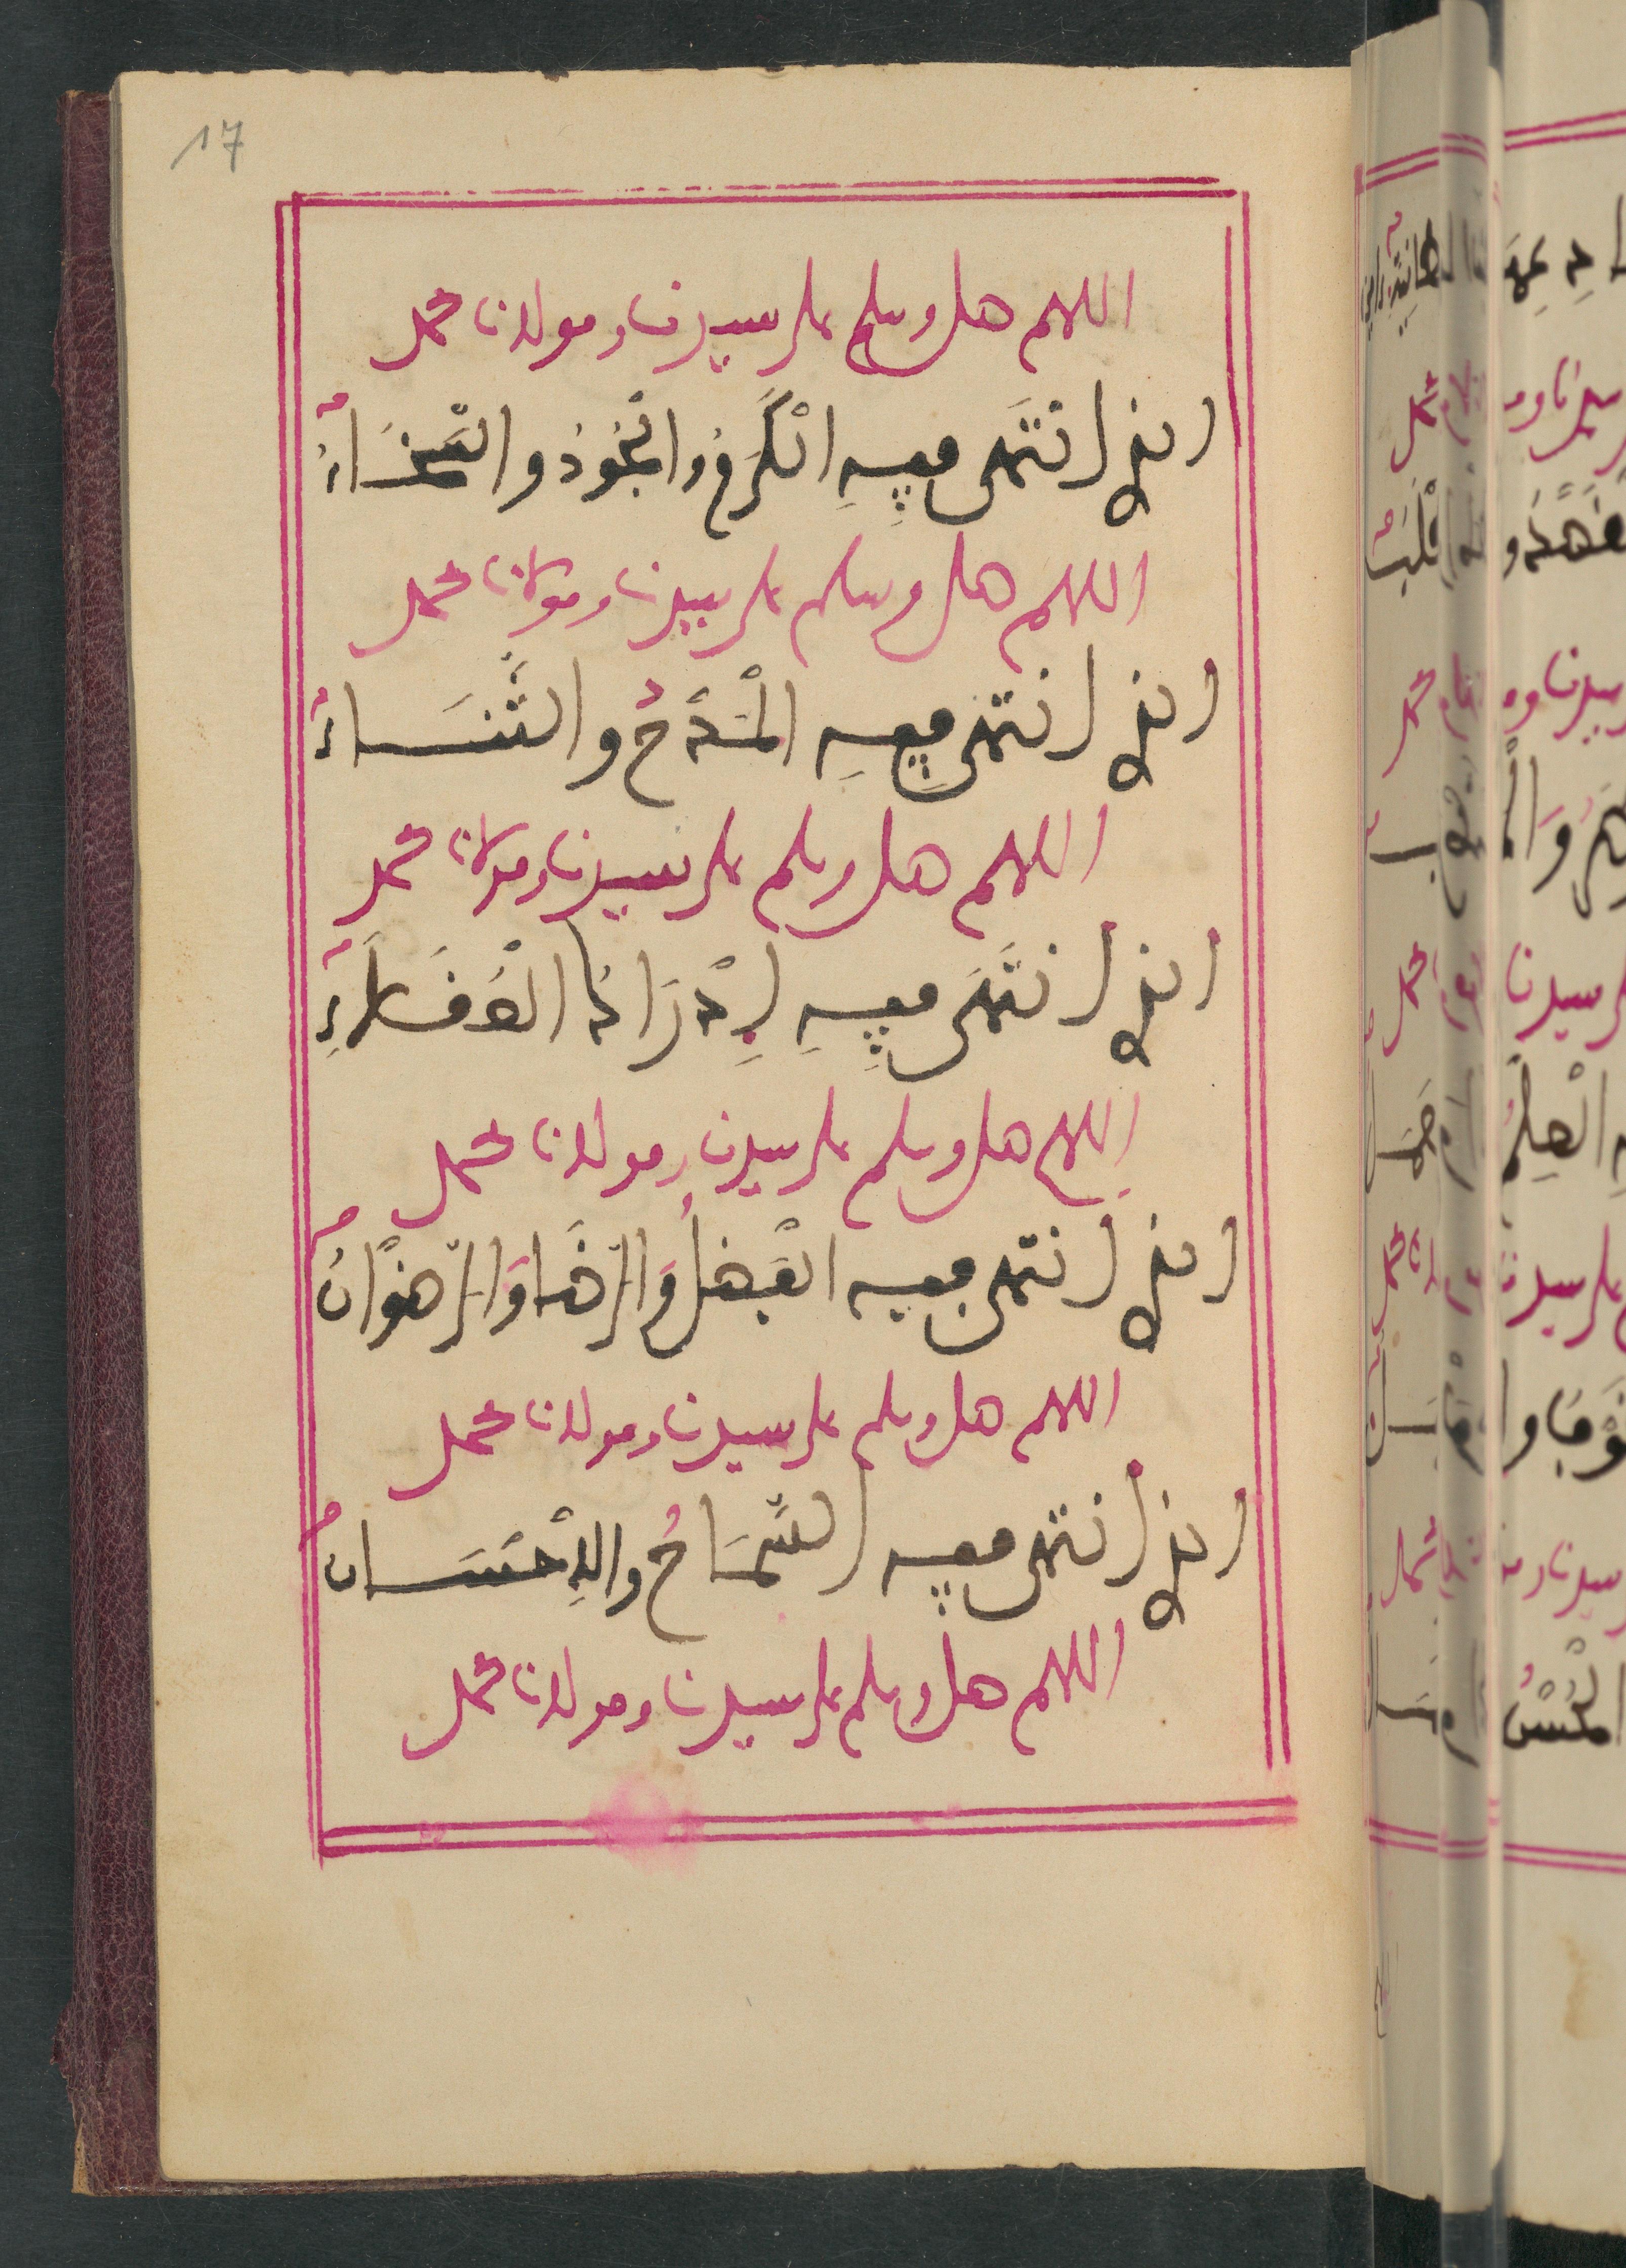 17
اللهم صل وسلم على سيدنا ومولانا محمد
الذي انتهى فيه الْكَرَمُ والْجُودُ والسَّخَاءُ
اللهم صل وسلم على سيدنا ومولانا محمد
الذي انتهى فيه الْمَدْحُ والثَّنَاءُ
اللهم صل وسلم على سيدنا ومولانا محمد
الذي انتهى فيه إِدْرَاكُ الْعُقَلَاءِ
اللهم صل وسلم على سيدنا ومولانا محمد
الذي انتهى فيه الْفَضْلُ وَالرِّضَا وَالرِّضْوَانُ
اللهم صل وسلم على سيدنا ومولانا محمد
الذي انتهى فيه السَّمَاحُ والْإِحْسَانُ
اللهم صل وسلم على سيدنا ومولانا محمد